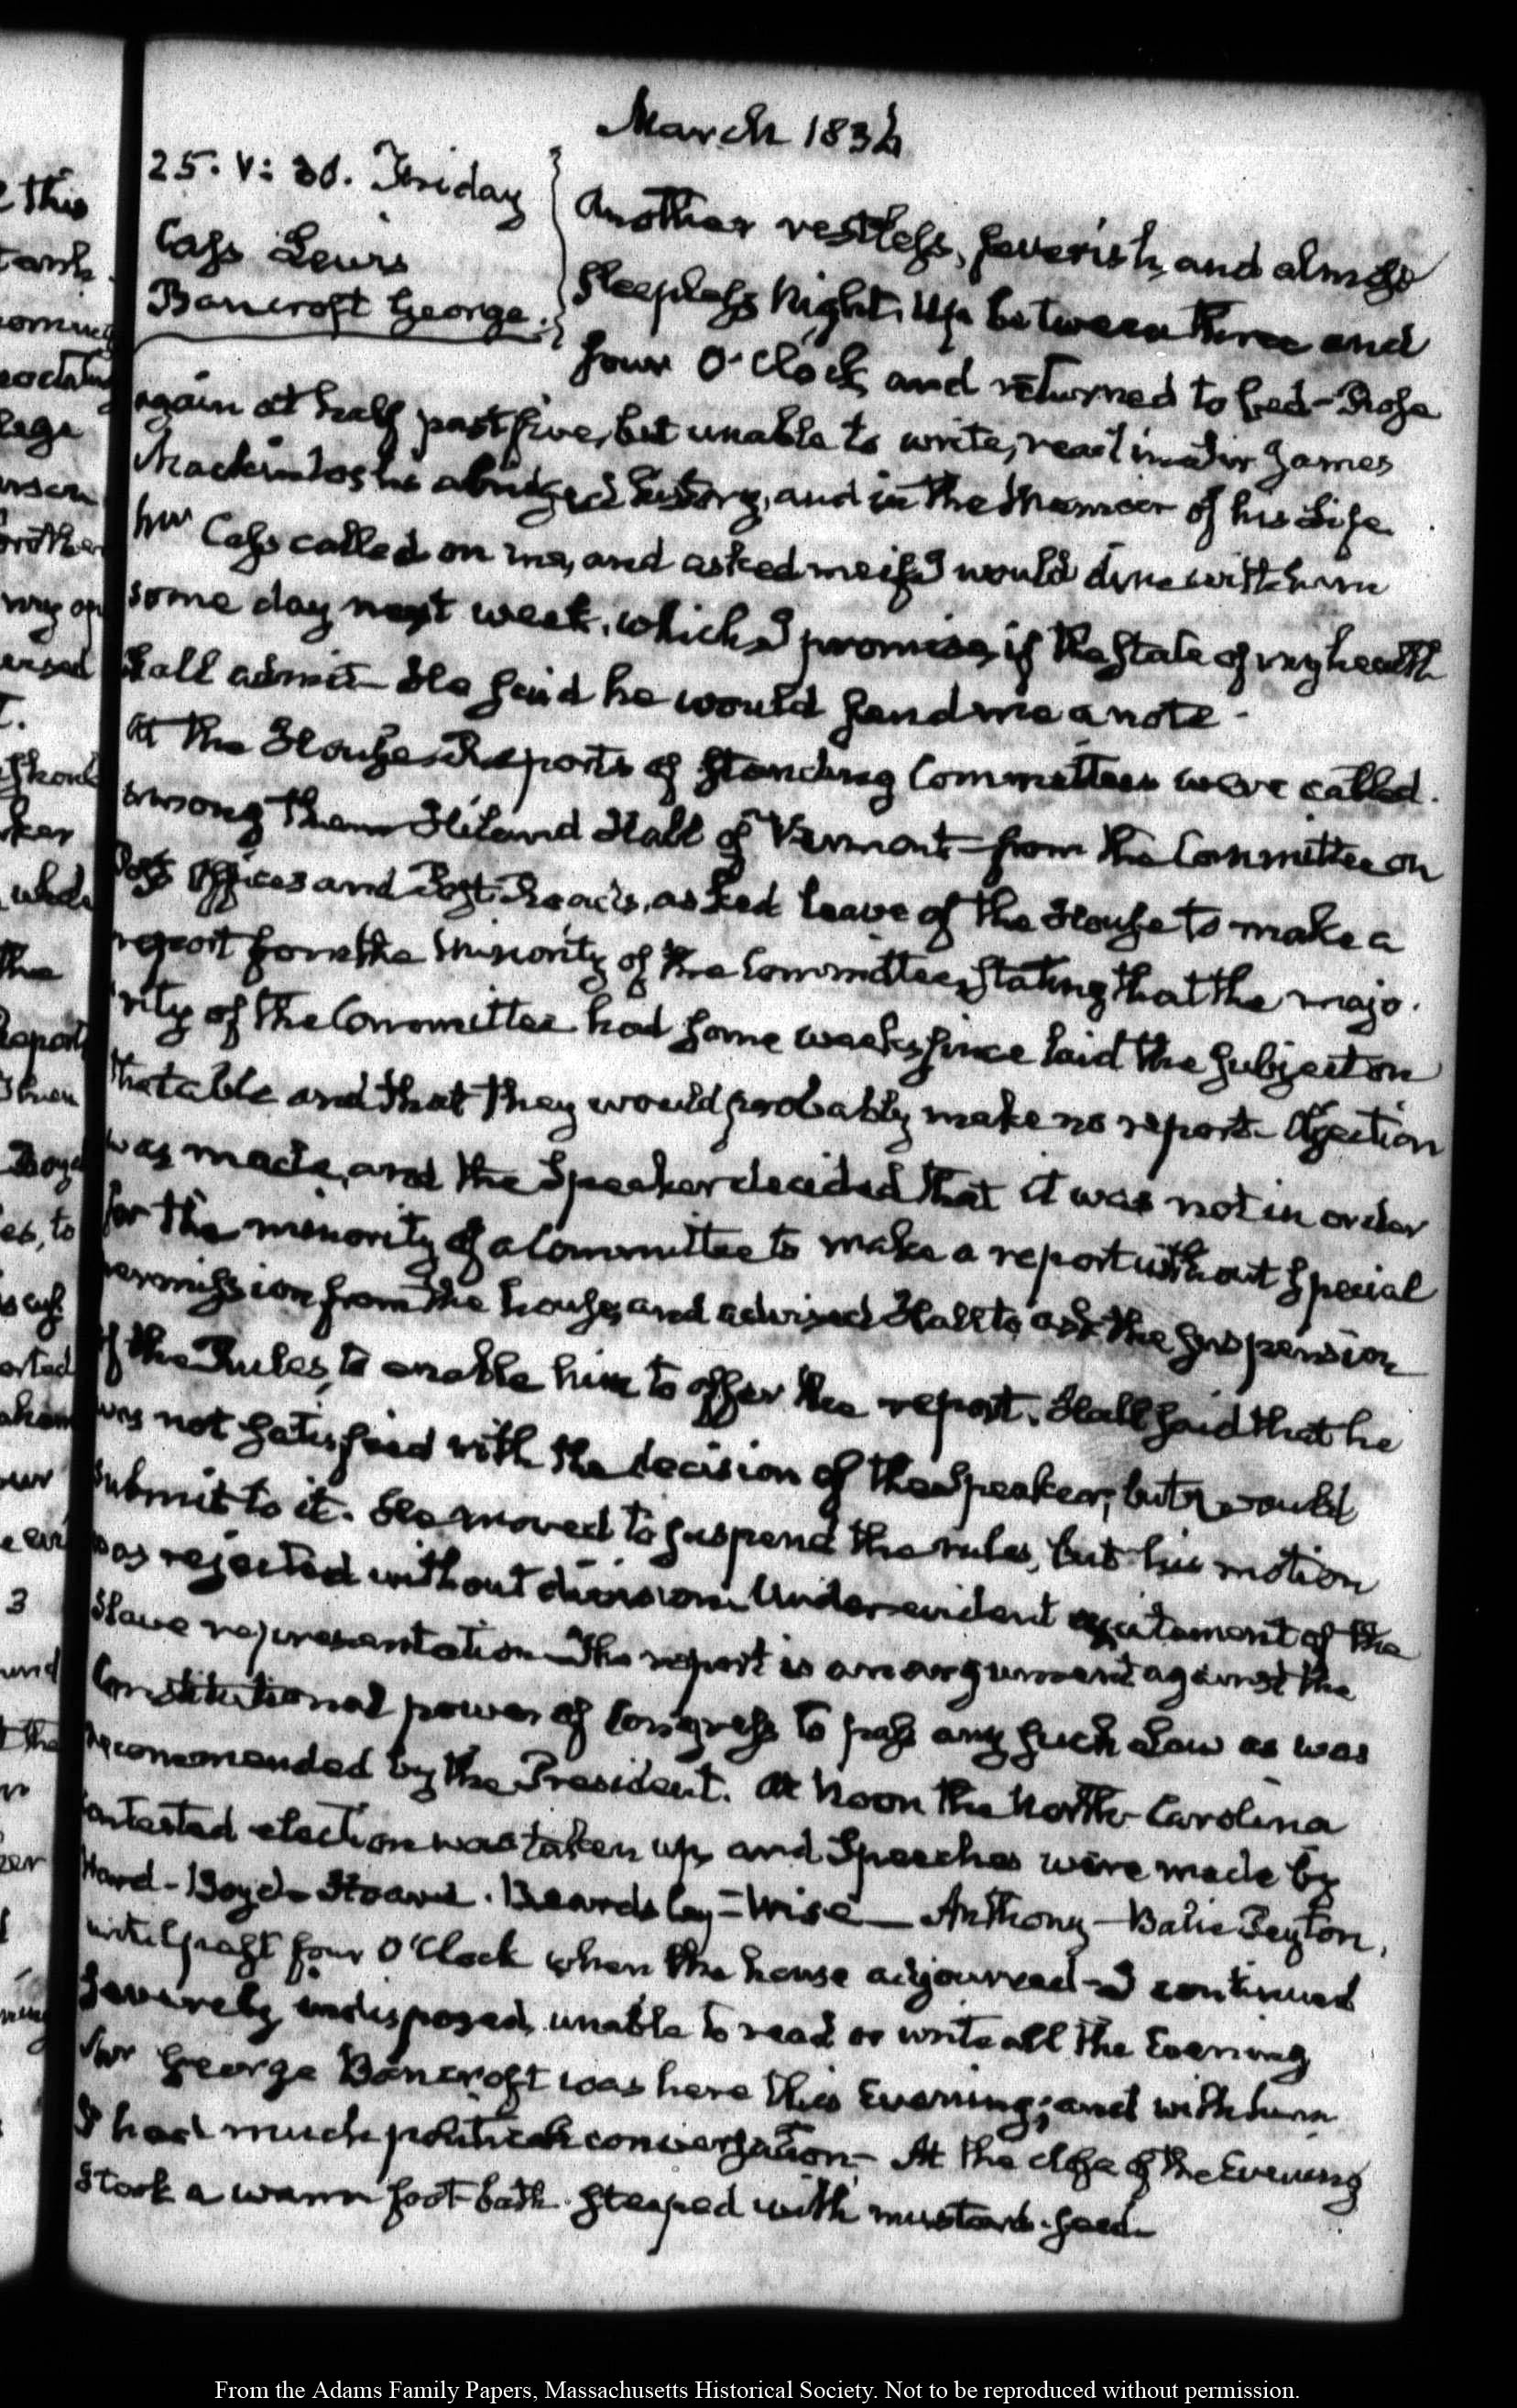 March 1836
25. V: 30. Friday
Cass Lewis
Bancroft George.
Another restless, feverish, and almost
sleepless Night. Up between three and
four O'Clock, and returned to bed - Rose
again at half past five, but unable to write, read in Sir James
Mackintosh's abridged History, and in the Memoir of his Life.
Mr Cass called on me, and asked me if I would dine with him
some day next week, which I promise, if the state of my health
shall admit - He said he would send me a note -
At the House, Reports of standing Committees were called.
among them Hiland Hall of Vermont - from the Committee on
Post Offices and Post Roads, asked leave of the House to make a
report from the Minority of the Committee, stating that the majo-
rity of the Committee had some weeks since laid the subject on
the table and that they would probably make no report - Objection
was made, and the Speaker decided that it was not in order
for the minority of a Committee to make a report without special
permission from the house, and advised Hall to ask the suspension
of the Rules, to enable him to offer the report. Hall said that he
was not satisfied with the decision of the Speaker, but would
submit to it. He moved to suspend the rules, but his motion
was rejected without division. Under evident excitement of the
slave representation - The report is an argument against the
Constitutional power of Congress to pass any such Law as was
recommended by the President. At Noon the North-Carolina
contested election was taken up, and Speeches were made by
Hard - Boyd - Hoard - Beardsley - Wise - Anthony - Balie Peyton,
until past four O'Clock when the house adjourned - I continued
severely indisposed, unable to read or write all the Evening
Mr George Bancroft was here this Evening; and with him
I had much political conversation - At the close of the Evening
I took a warm foot-bath steeped with mustard-seed -
From the Adams Family Papers, Massachusetts Historical Society. Not to be reproduced without permission.